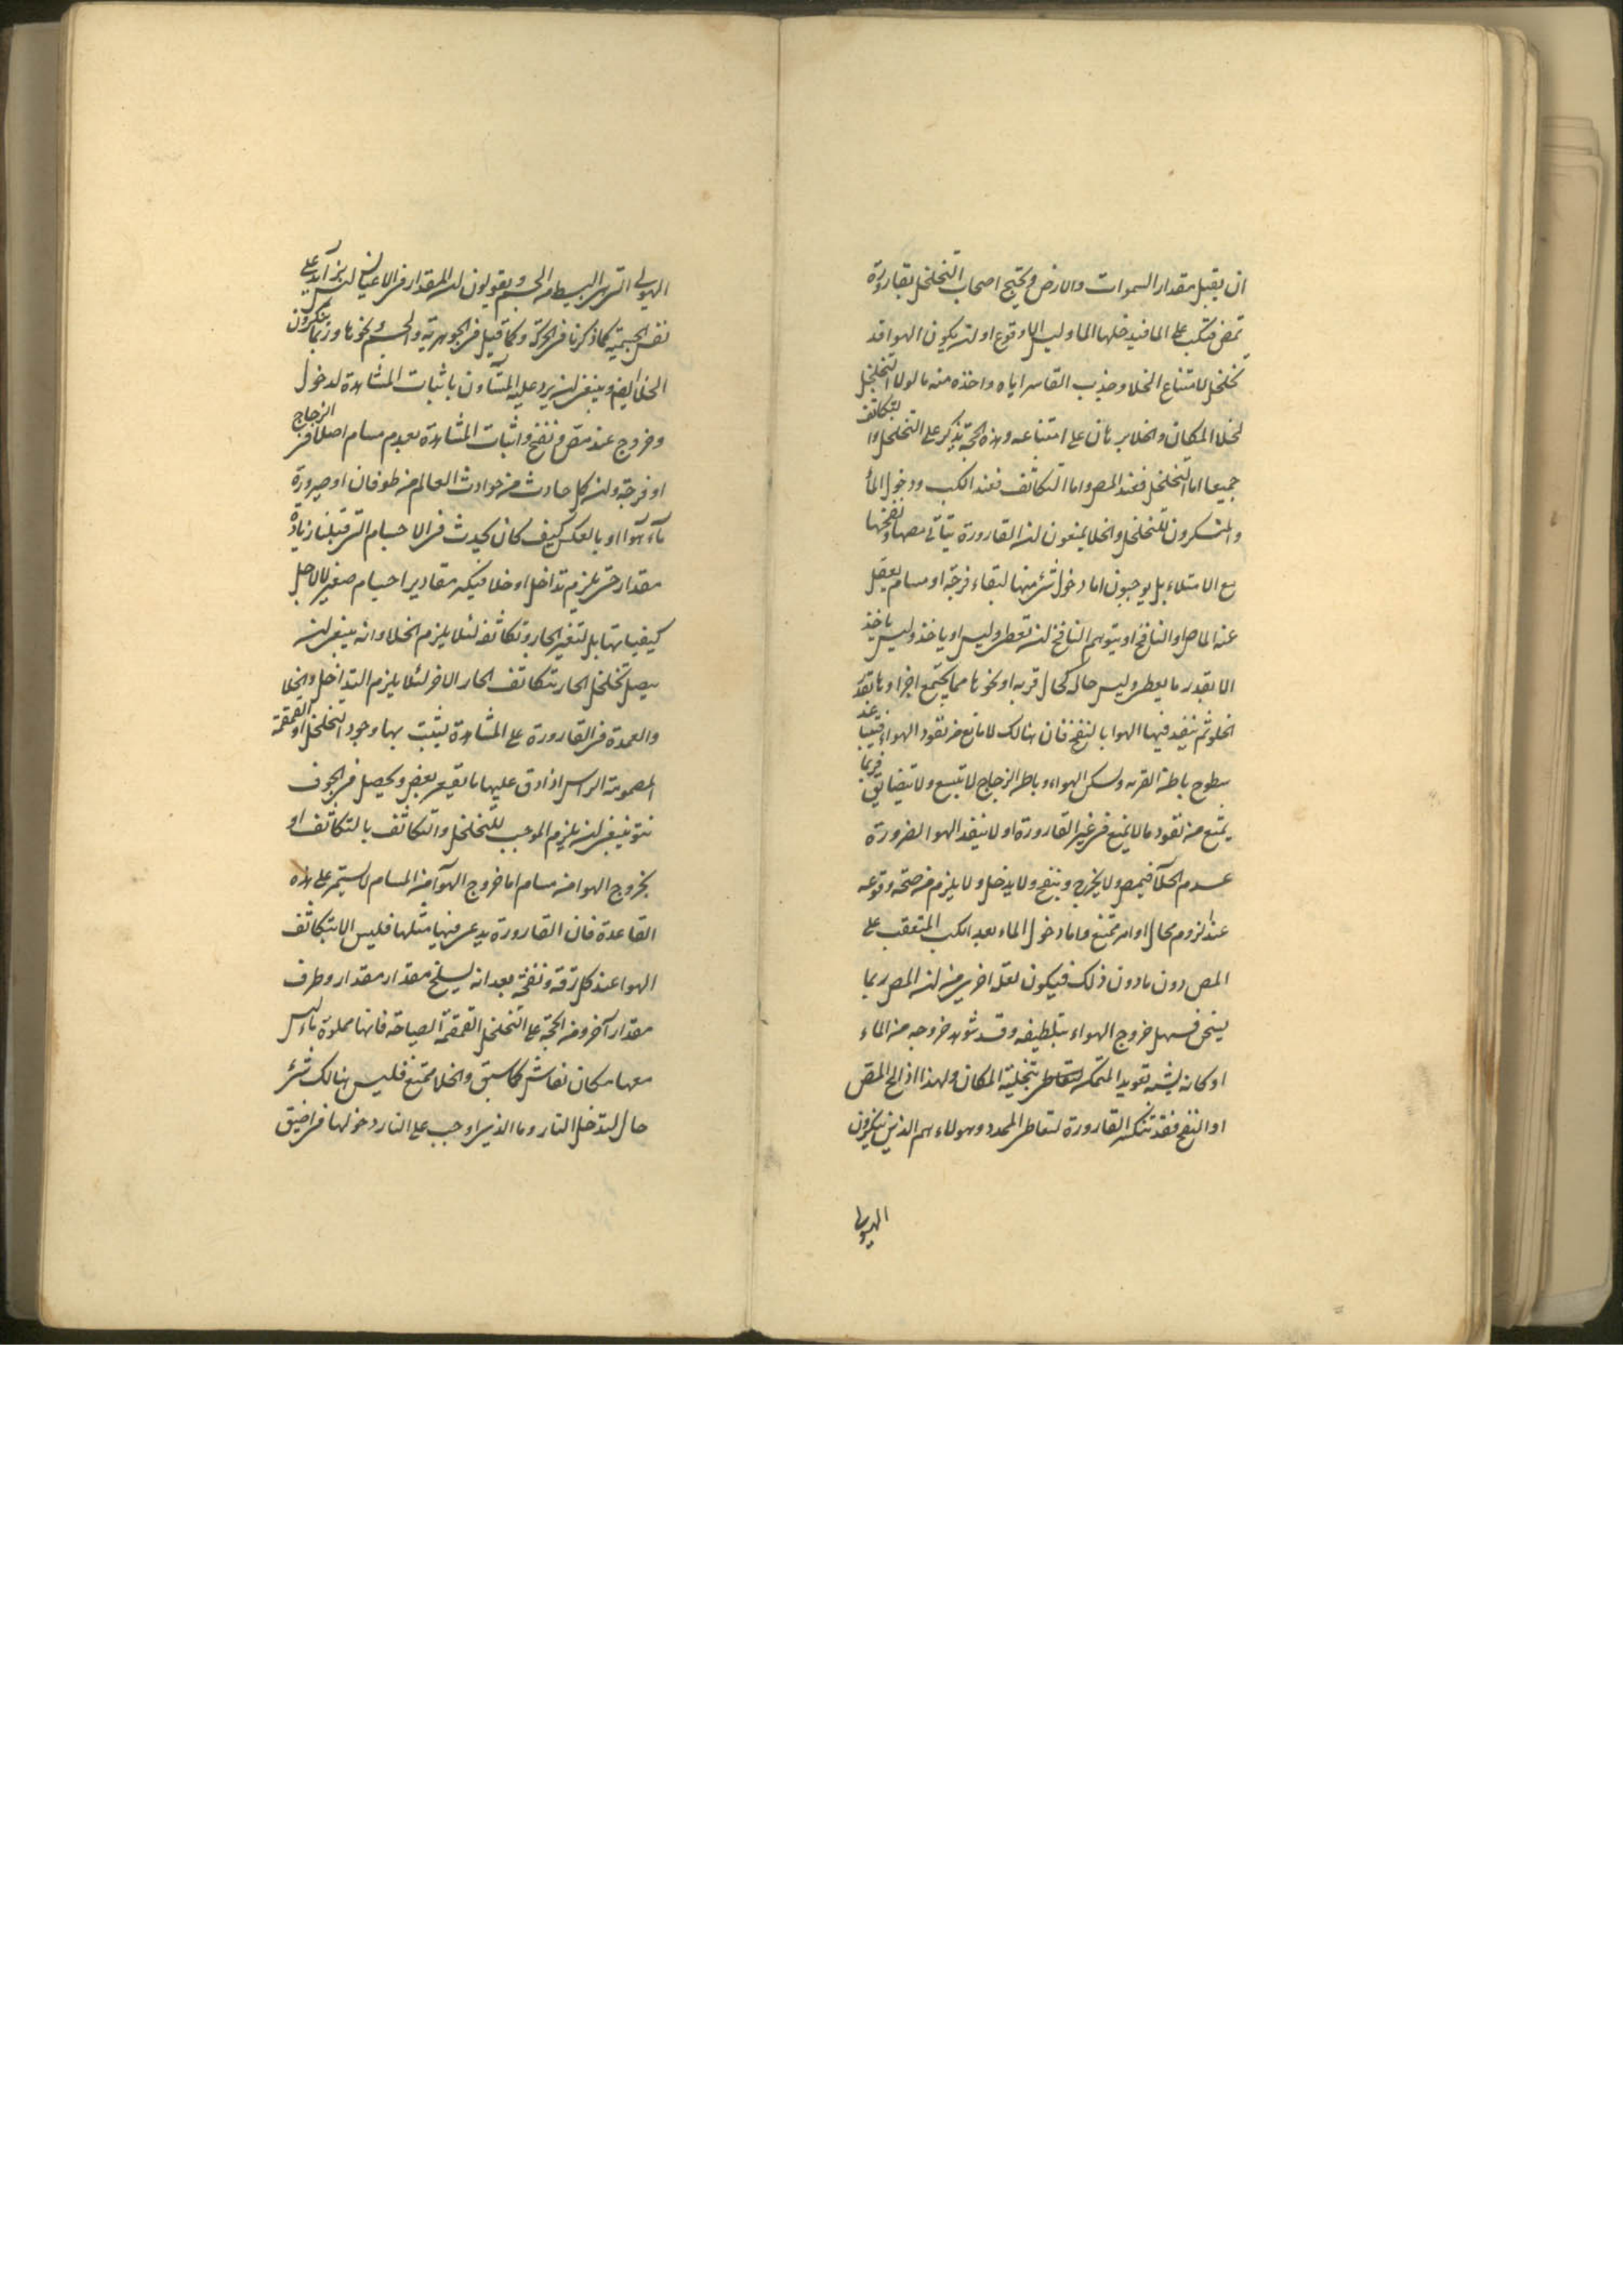 ان يقبل مقدار السموات والارض ويحتج اصحاب التخلخل بقارورة
تمص فتكب على الما فيدخلها الما وليس الا وقوع او لان يكون الهوا قد
تخلخل لامتناع الخلا وجذب القاسر اياه واخذه منه ما لولا التخلخل
لخلا المكان والخلا برهان على امتناعه وهذه الحجة يذكر على التخلخل والتكاثف
جميعا اما التخلخل فعند المص واما التكاثف فعند الكب ودخول الما
والمنكرون للتخلخل والخلا يمنعون ان القارورة يتأتى مصها ونفخها
مع الامتلاء بل يوجبون اما دخول شئ منها لبقاء فرجة او مسام يغفل
عنه الماص او النافخ او يتوهم النافخ ان يعطى وليس او ياخذ وليس ياخذ
الا بقدر ما يعطى وليس حاله كحال قربة او نحوها مما يجتمع اجزاوها بقدر
الخلو ثم ينفذ فيها الهوا بالنفخ فان هنالك لا مانع من نفود الهواء عند
سطوح باطن القربة ولسكن الهواء وباطن الزجاج لا يتسع ولا يتضايق فربما
يمتنع من نفود ما لا يمنع فى غير القارورة او لا ينفذ الهوا لضرورة
عدم الخلآ فيمص ولا يخرج وينفخ ولا يدخل ولا يلزم من صحة وقوعه
عند لزوم محال او امر ممتنع واما دخول الماء بعد الكب المتعقب على
المص دون مادون ذلك فيكون لعلة اخرى من ان المص ربما
يسخن فسهل خروج الهواء بتلطيفه وقد شوهد خروجه من الماء
او كانه يشبه تعويد المتمكن بتخلية المكان ولهذا اذا الح المص
او النفخ فقد تنكسر القارورة لتعاطى المحدد وهولاء هم الذين ينكرون
الهيولى
الهيولى التى هى البسط من الجسم ويقولون ان المقدار فى الاعيان ليس بزآيد على
نفس الجسمية كما ذكرنا فى الحركة وكما قيل فى الجوهرية والجسم ونحوها وربما ينكرون
الخلا ايضا وينبغى ان يرد عليه المشآون باثبات المشاهدة لدخول
وخروج عند مص ونفخ واثبات المشاهدة بعدم مسام اصلا فى الزجاج
او فرجة وان كل حادث من حوادث العالم من طوفان او صيرورة
مآء هوآ او بالعكس كيف كان يحدث فى الاجسام التى قبلنا زيادة
مقدار حتى يلزم تداخل او خلا فيكن مقادير اجسام صغير لا لاجل
كيفياتها بل لتغير الجار وتكاثف لئلا يلزم الخلا وانه ينبغى ان
يصل تخلخل الجار بتكاثف الجار الاخر لئلا يلزم التداخل والخلا
والعمدة فى القارورة على المشاهدة يثبت بها وجود التخلخل او القمقمة
المصمومة الراس اذا دق عليها ما يقيعر بعض ويحصل فى الجوف
نتو ينبغى ان يلزم الموجب للتخلخل والتكاثف بالتكاثف او
بخروج الهوا من مسام اما خروج الهوآ من المسام لا يستمر على هذه
القاعدة فان القارورة يدعى فيها مثلها فليس الا بتكاثف
الهوا عند كل زقة ونفخة بعد ان يسلخ مقدار مقدار وطرف
مقدار آخر ومن الحجة على التخلخل القمقمة الصياحة فانها مملوة ماء ليس
معها مكان نفاش كما سبق والخلا ممتنع فليس هنالك شئ
حال لتدخل النار وما الذى اوجب على النار دخولها فى اضيق